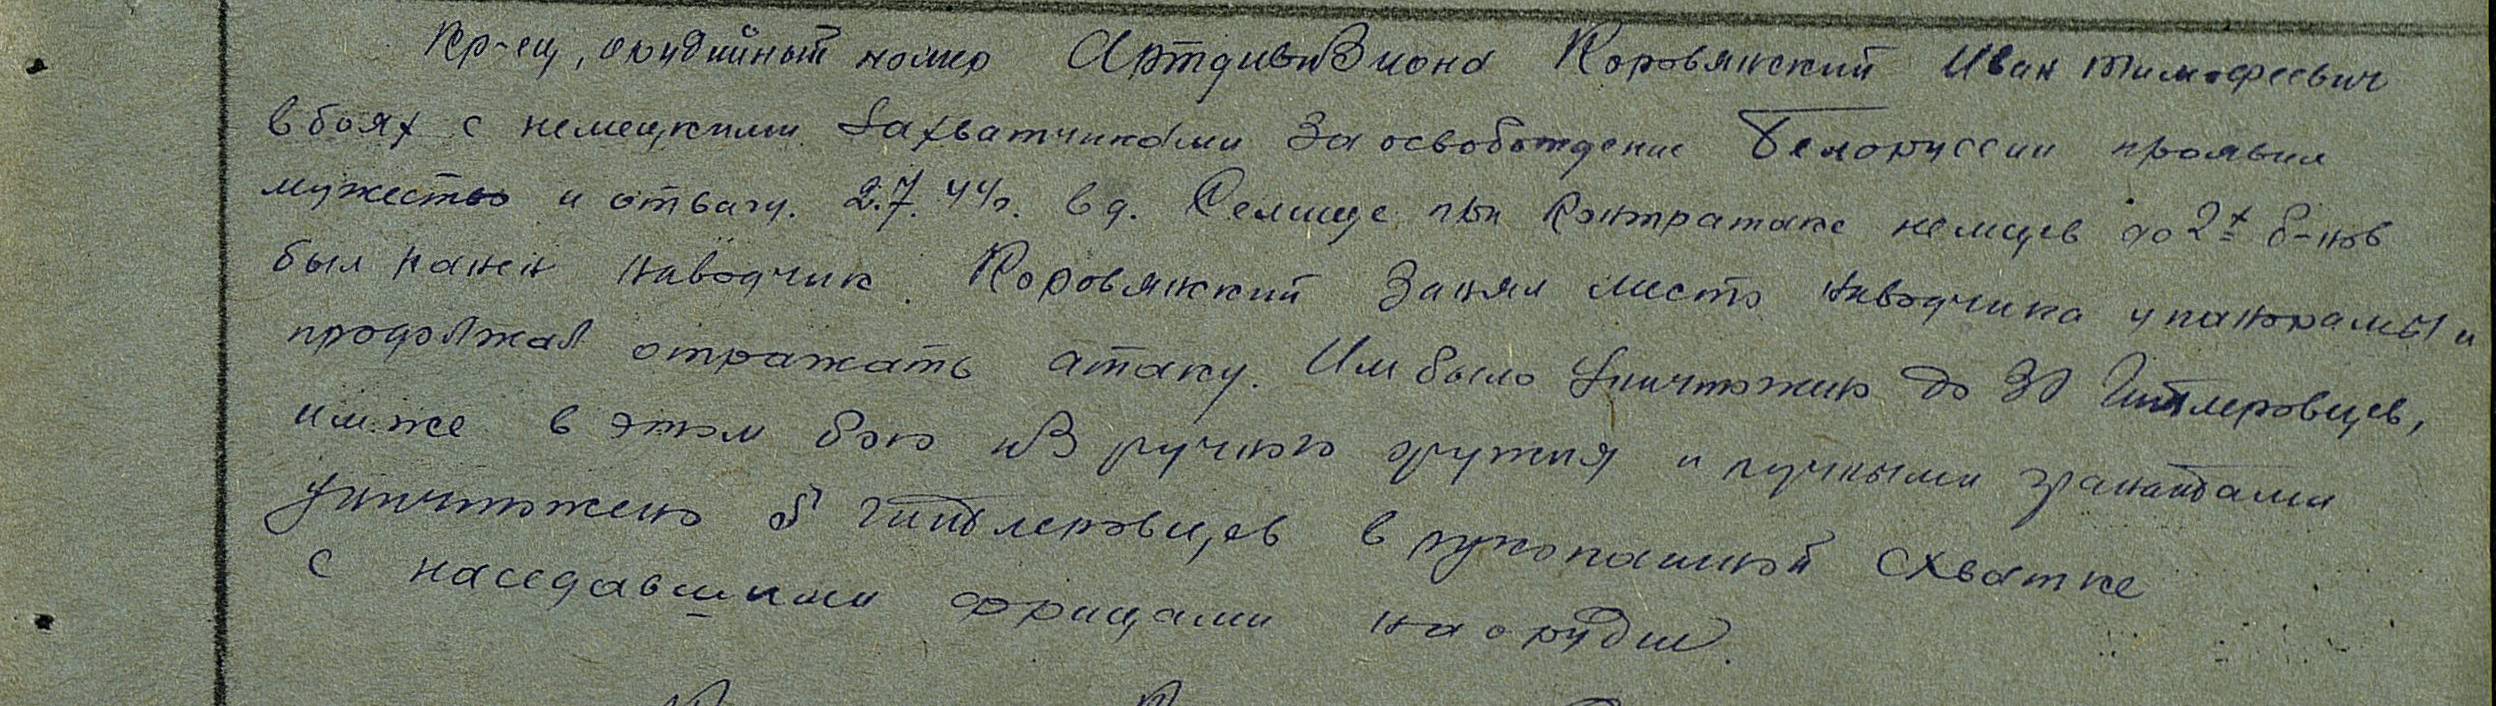 Кр-ец, орудийный номер Артдивизиона Коровянский Иван Тимофеевич
в боях с немецкими захватчиками за освобождение Белоруссии проявил
мужество и отвагу. 2.7.44г. в д. Селище при контратаке немцев до 2х б-нов
был ранен наводчик. Коровянский занял место наводчика у панорамы и
продолжал отражать атаку. Им было уничтожено до 30 Гитлеровцев,
им же в этом бою из ручного оружия и ручными гранатами
уничтожено 8 гитлеровцев в рукопашной схватке
с наседавшими фрицами на орудие.